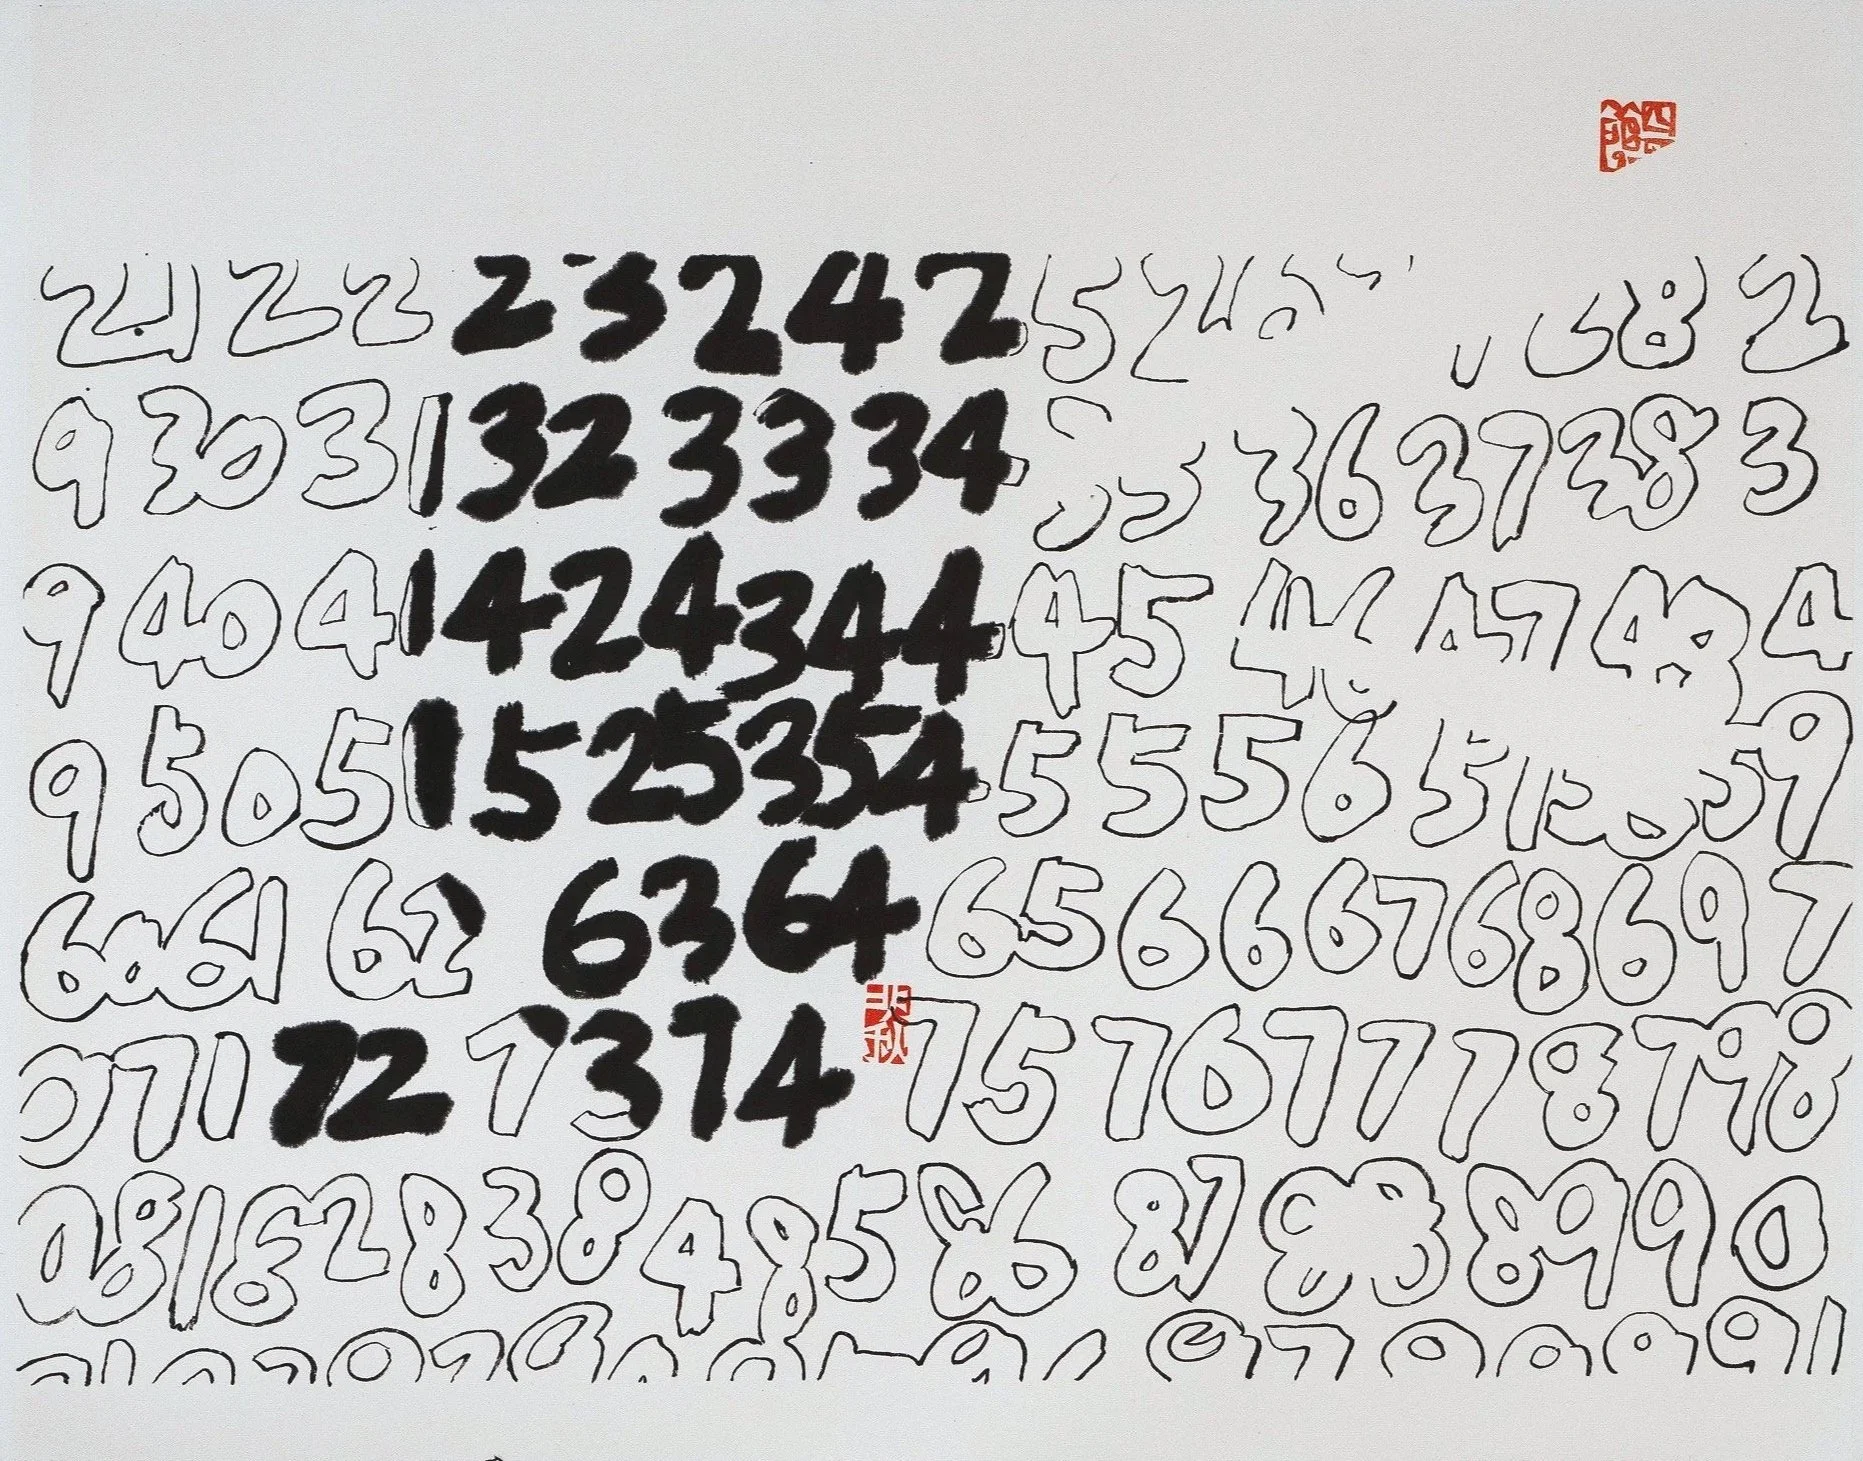 21 22 23 24 2 5 2 8 2
9 30 31 32 33 34 35 36 37 38 3
9 40 41 42 43 44 45 46 47 48 4
9 50 51 52 53 54 55 56 5 59
60 61 62 63 64 65 66 67 68 69 7
0 71 72 73 74 75 76 77 78 79 8
0 81 82 83 84 85 86 87 88 89 90